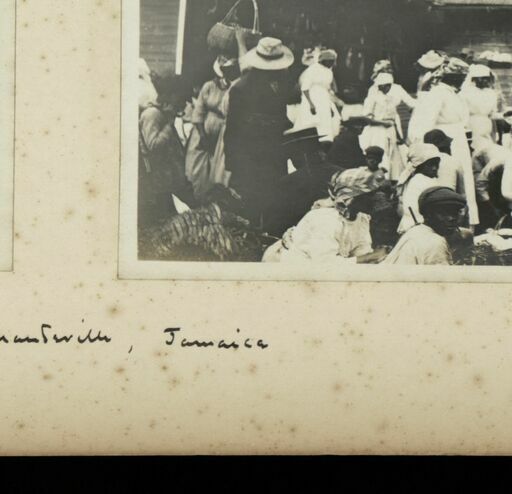 nanteville, Jamaica